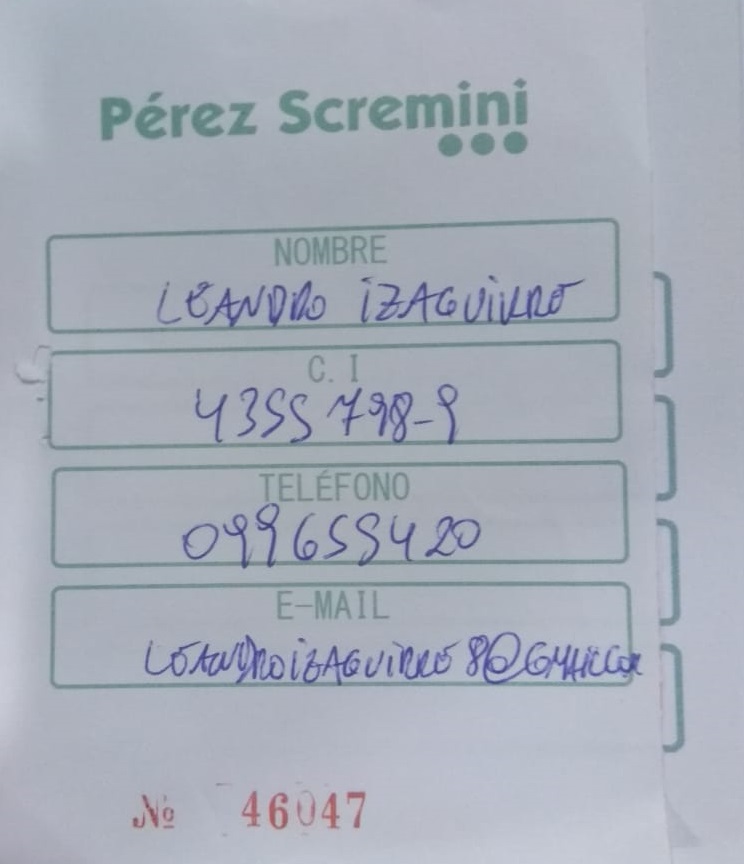 Pérez Scremini
NOMBRE
LEANDRO IZAGUIRRE
C. I
4355798-9
TELÉFONO
099655420
E-MAIL
LEANDROIZAGUIRRE8@GMAIL.COM
Nº 46047